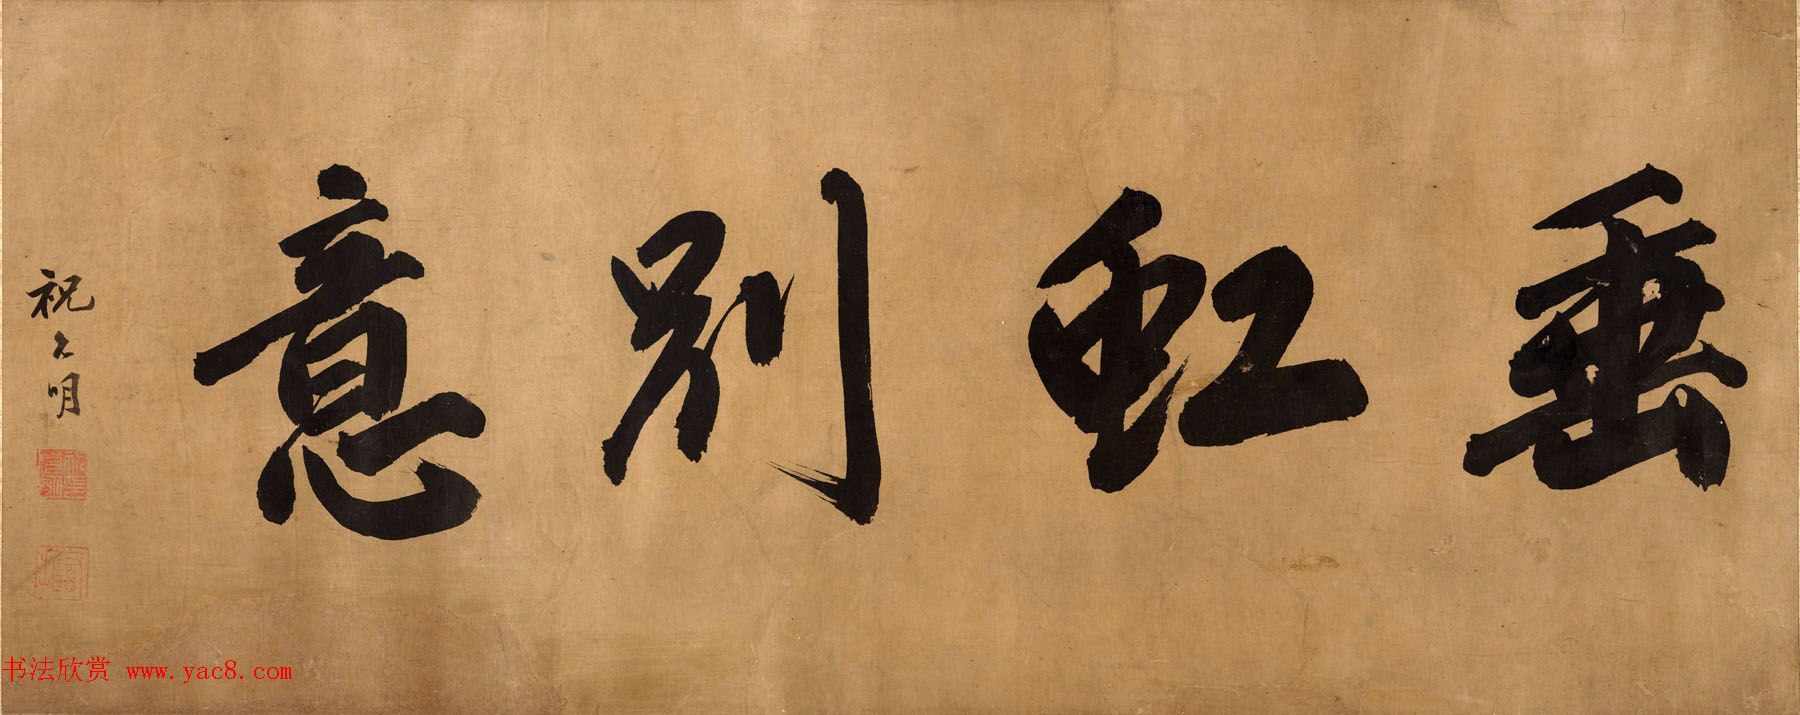 垂虹別意
祝允明
书法欣赏 www.yac8.com